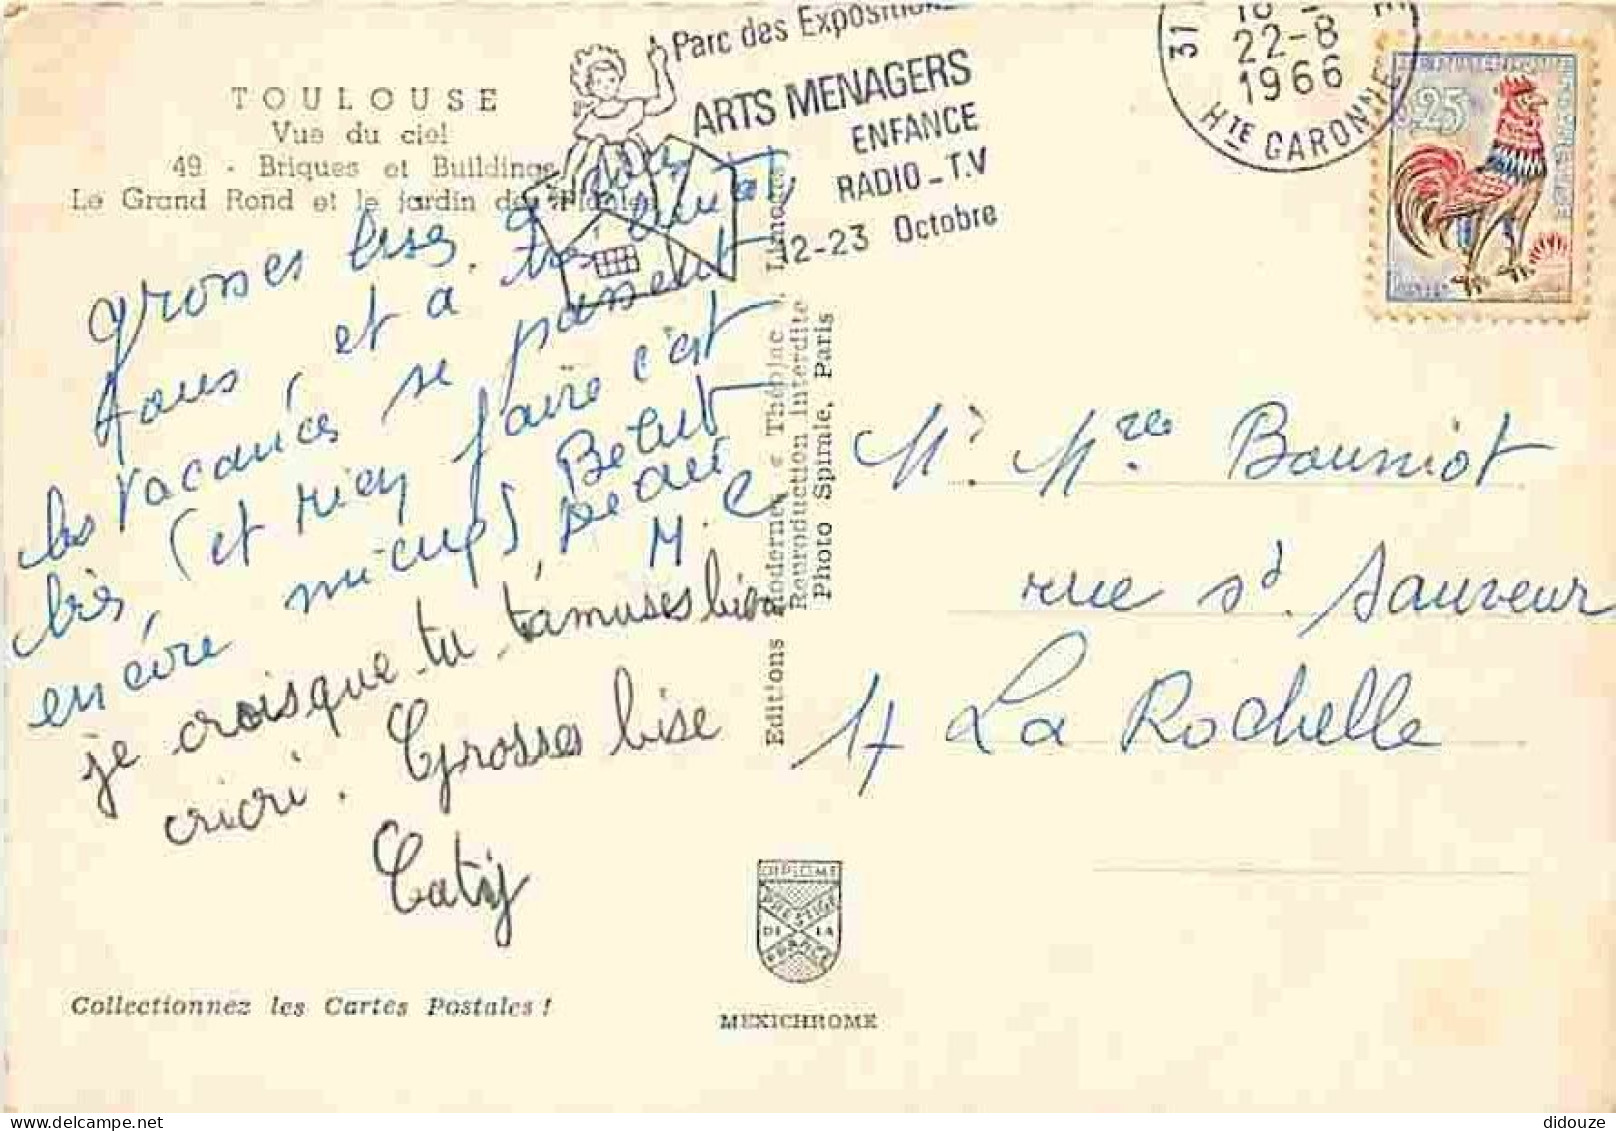 TOULOUSE
Vue du ciel
49 - Briques et Buildings
Le Grand Rond et le jardin des Plantes
Parc des Expositions
ARTS MENAGERS
ENFANCE
RADIO_T.V
12-23 Octobre
31
18
22-8
1966
HTE GARONNE
0,25
Grosses bises à
tous et à très bientôt,
les vacances se passent
très, (et rien faire c'est
encore mieux)
M.C
je crois que tu t'amuses bien
cricri. Grosses bise
Caty
Editions Modernes « Théojac » Limoges
Reproduction interdite
Photo Spirale, Paris
Mr Mre Bouniot
rue St Sauveur
17 La Rochelle
DIPLOME
PRESTIGE
DE LA
FRANCE
MEXICHROME
Collectionnez les Cartes Postales !
didouze